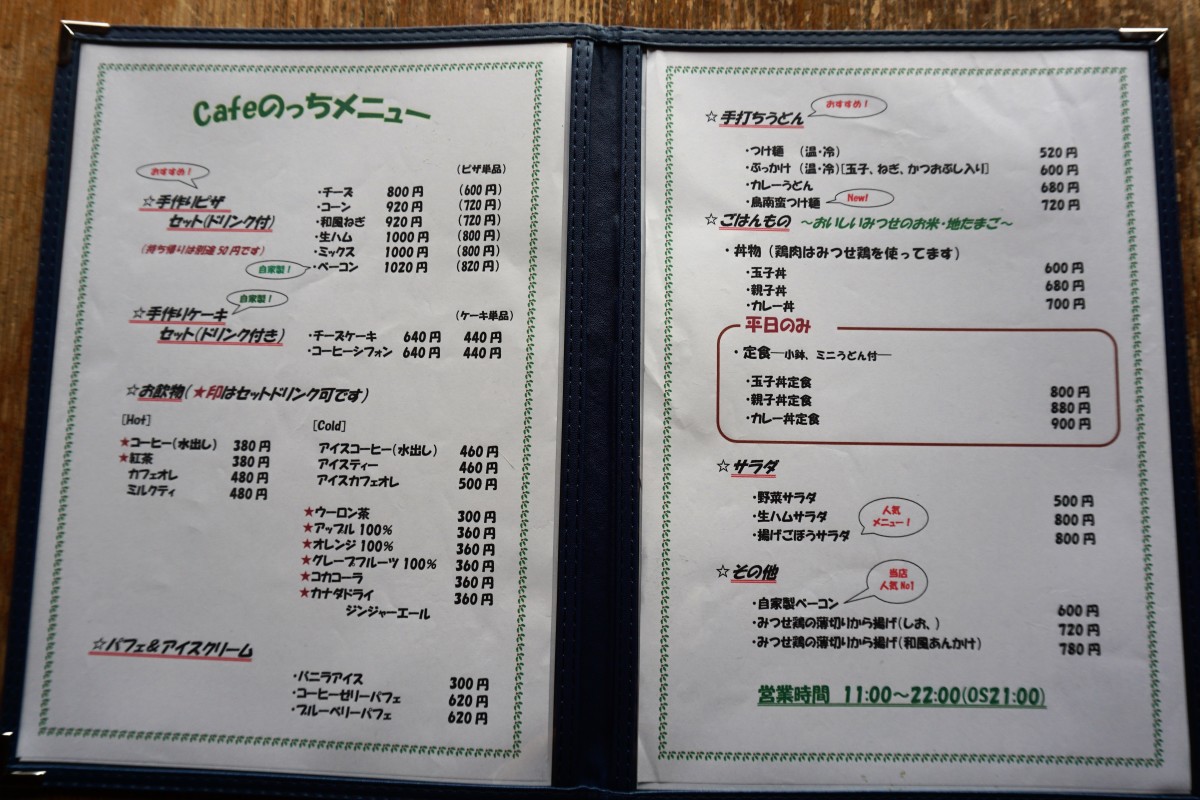 Cafeのっちメニュー
おすすめ!
(ピザ単品)
☆手作りピザ
セット(ドリンク付)
(持ち帰りは別途50円です)
・チーズ 800円 (600円)
・コーン 920円 (720円)
・和風ねぎ 920円 (720円)
・生ハム 1000円 (800円)
・ミックス 1000円 (800円)
自家製!
・ベーコン 1020円 (820円)
自家製!
☆手作りケーキ
セット(ドリンク付き)
(ケーキ単品)
・チーズケーキ 640円 440円
・コーヒーシフォン 640円 440円
☆お飲物(★印はセットドリンク可です)
[Hot]
★コーヒー(水出し) 380円
★紅茶 380円
カフェオレ 480円
ミルクティ 480円
[Cold]
アイスコーヒー(水出し) 460円
アイスティー 460円
アイスカフェオレ 500円
★ウーロン茶 300円
★アップル 100% 360円
★オレンジ 100% 360円
★グレープフルーツ 100% 360円
★コカコーラ 360円
★カナダドライ 360円
ジンジャーエール
☆パフェ&アイスクリーム
・バニラアイス 300円
・コーヒーゼリーパフェ 620円
・ブルーベリーパフェ 620円
☆手打ちうどん
おすすめ!
・つけ麺 (温・冷) 520円
・ぶっかけ (温・冷)[玉子、ねぎ、かつおぶし入り] 600円
・カレーうどん 680円
・鳥南蛮つけ麺 New! 720円
☆ごはんもの ~おいしいみつせのお米・地たまご~
・丼物(鶏肉はみつせ鶏を使ってます)
・玉子丼 600円
・親子丼 680円
・カレー丼 700円
平日のみ
・定食―小鉢、ミニうどん付―
・玉子丼定食 800円
・親子丼定食 880円
・カレー丼定食 900円
☆サラダ
・野菜サラダ 500円
・生ハムサラダ 800円
・揚げごぼうサラダ 800円
人気
メニュー!
☆その他
当店
人気No1
・自家製ベーコン 600円
・みつせ鶏の薄切りから揚げ(しお、) 720円
・みつせ鶏の薄切りから揚げ(和風あんかけ) 780円
営業時間 11:00~22:00(OS21:00)